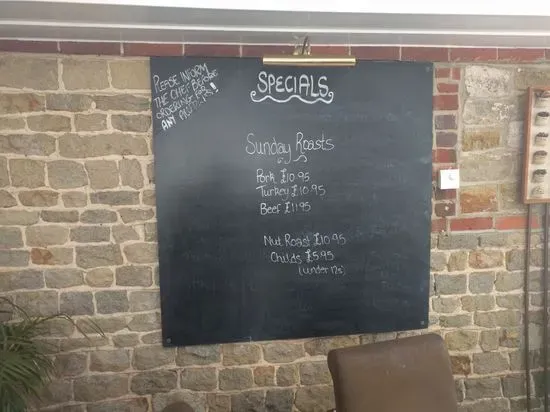 PLEASE INFORM
THE CHEF BEFORE
ORDERING FOR
ANY
SPECIALS
Sunday Roasts
Pork £10.95
Turkey £10.95
Beef £11.95
Nut Roast £10.95
Childs £5.95
(under 12s)